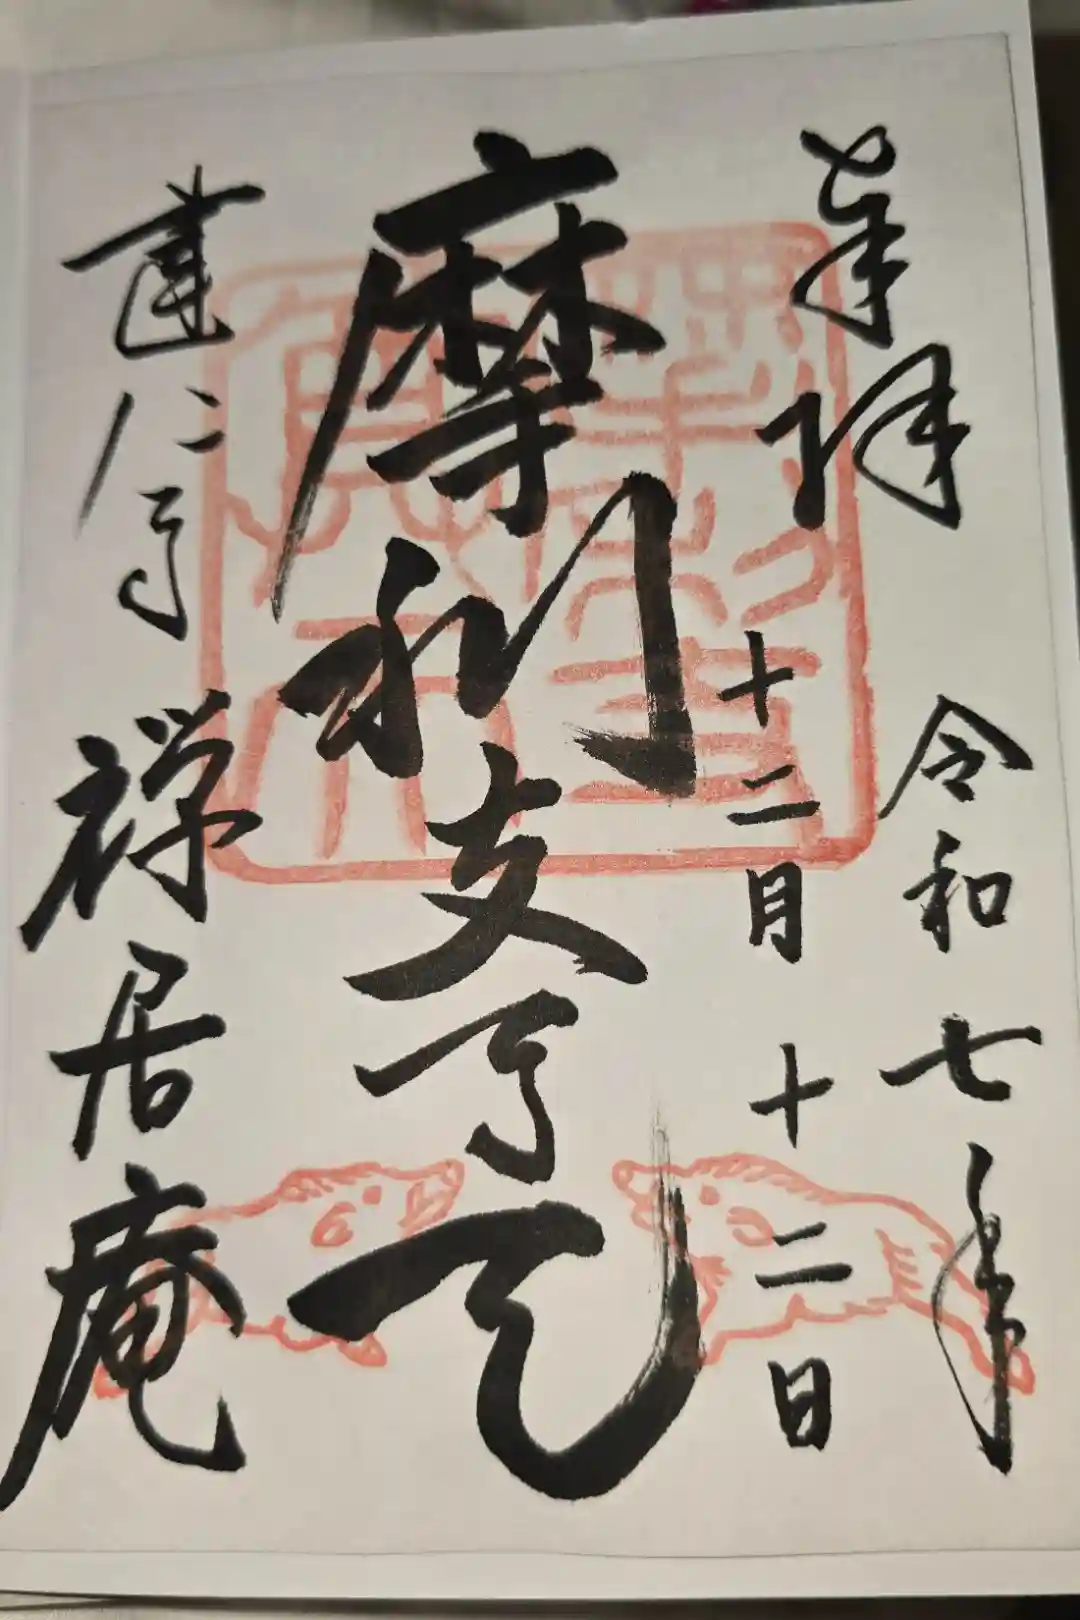 奉拝 令和七年
十二月十二日
摩利支尊天
建仁寺 禅居庵